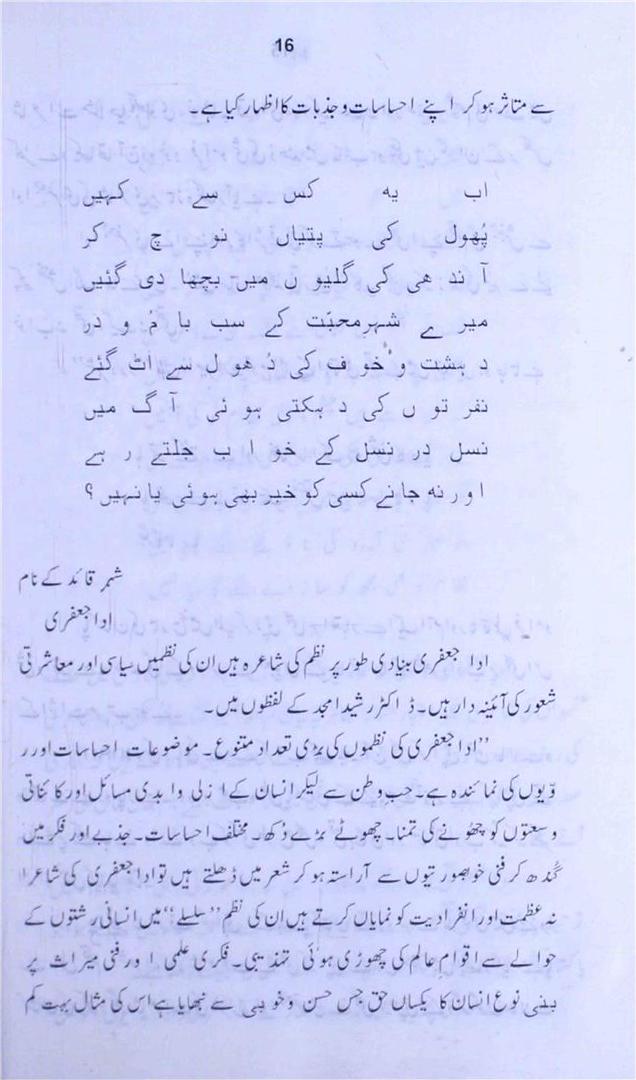 16
سے متاثر ہو کر اپنے احساسات و جذبات کا اظہار کیا ہے۔
اب یہ کس سے کہیں
پُھول کی پتیاں نوچ کر
آندھی کی گلیوں میں بچھا دی گئیں
میرے شہرِ محبّت کے سب بام و در
دہشت و خوف کی دُھول سے اٹ گئے
نفرتوں کی دہکتی ہوئی آگ میں
نسل در نسل کے خواب جلتے رہے
اور نہ جانے کسی کو خبر بھی ہوئی یا نہیں؟
شہر قائد کے نام
ادا جعفری
ادا جعفری بنیادی طور پر نظم کی شاعرہ ہیں ان کی نظمیں سیاسی اور معاشرتی
شعور کی آئینہ دار ہیں۔ ڈاکٹر رشید امجد کے لفظوں میں۔
”ادا جعفری کی نظموں کی بڑی تعداد متنوع۔ موضوعات احساسات اور ر
ویّوں کی نمائندہ ہے۔ حب وطن سے لیکر انسان کے ازلی و ابدی مسائل اور کائناتی
وسعتوں کو چھونے کی تمنا۔ چھوٹے بڑے دُکھ۔ مختلف احساسات۔ جذبے اور فکر میں
گُندھ کر فنی خوبصورتیوں سے آراستہ ہو کر شعر میں ڈھلتے ہیں تو ادا جعفری کی شاعرا
نہ عظمت اور انفرادیت کو نمایاں کرتے ہیں ان کی نظم ”سلسلے“ میں انسانی رشتوں کے
حوالے سے اقوامِ عالم کی چھوڑی ہوئی تہذیبی۔ فکری علمی اور فنی میراث پر
بنی نوع انسان کا یکساں حق جس حسن و خوبی سے نبھایا ہے اس کی مثال بہت کم